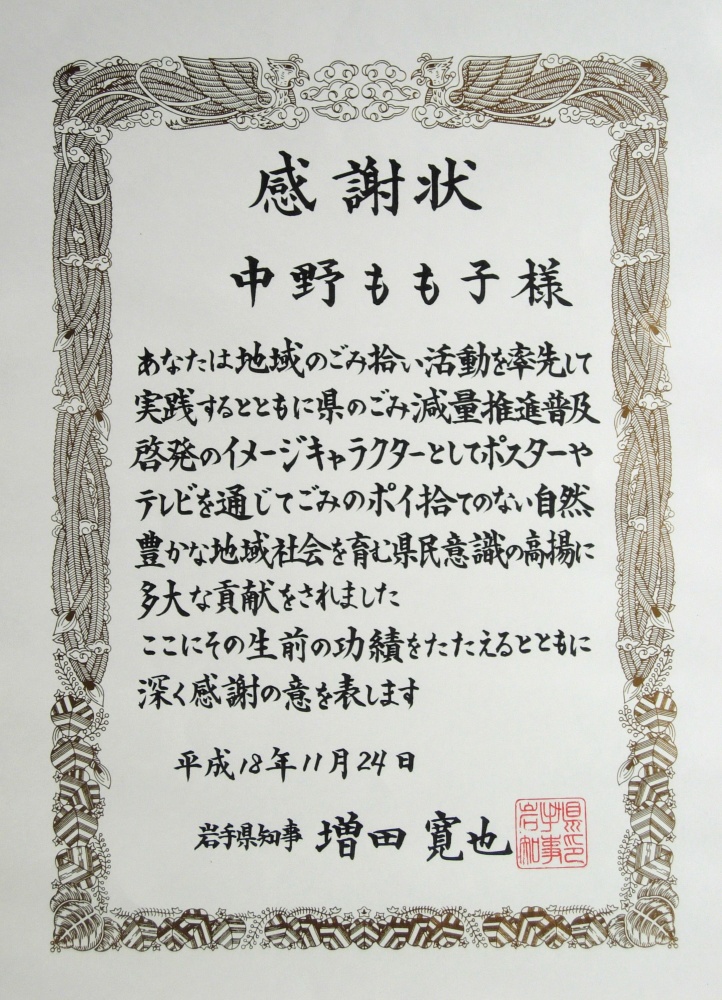 感謝状
中野もも子様
あなたは地域のごみ拾い活動を率先して
実践するとともに県のごみ減量推進普及
啓発のイメージキャラクターとしてポスターや
テレビを通じてごみのポイ捨てのない自然
豊かな地域社会を育む県民意識の高揚に
多大な貢献をされました
ここにその生前の功績をたたえるとともに
深く感謝の意を表します
平成18年11月24日
岩手県知事 増田寛也
岩手県知事印